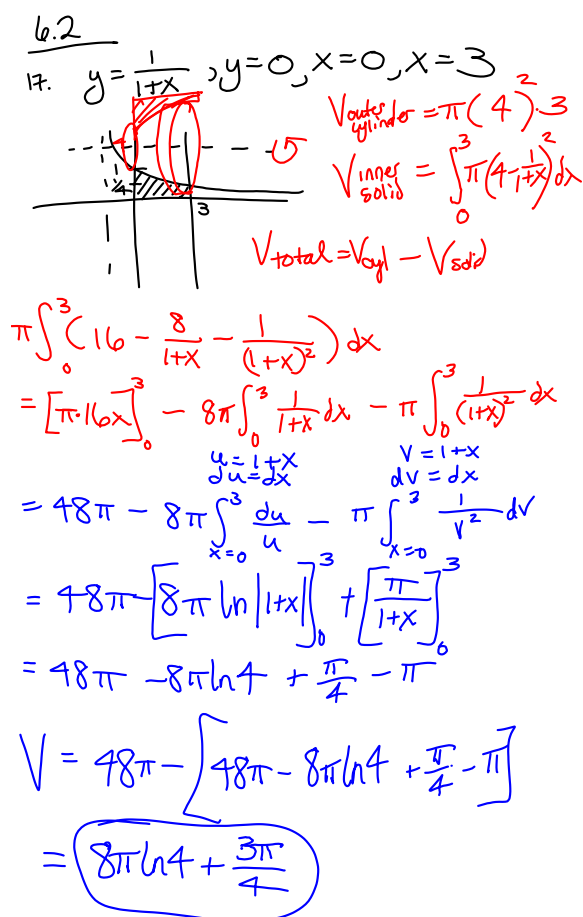 6.2
17. y = 1/(1+x), y=0, x=0, x=3
4
3
V outer cylinder = π(4)²·3
V inner solid = ∫₀³ π(4 - 1/(1+x))² dx
V total = V cyl - V solid
π∫₀³ (16 - 8/(1+x) - 1/(1+x)²) dx
= [π·16x]₀³ - 8π∫₀³ 1/(1+x) dx - π∫₀³ 1/(1+x)² dx
u = 1+x
du = dx
v = 1+x
dv = dx
= 48π - 8π∫ₓ₌₀³ du/u - π∫ₓ₌₀³ 1/v² dv
= 48π - [8π ln|1+x|]₀³ + [π/(1+x)]₀³
= 48π - 8π ln4 + π/4 - π
V = 48π - [48π - 8π ln4 + π/4 - π]
= 8π ln4 + 3π/4